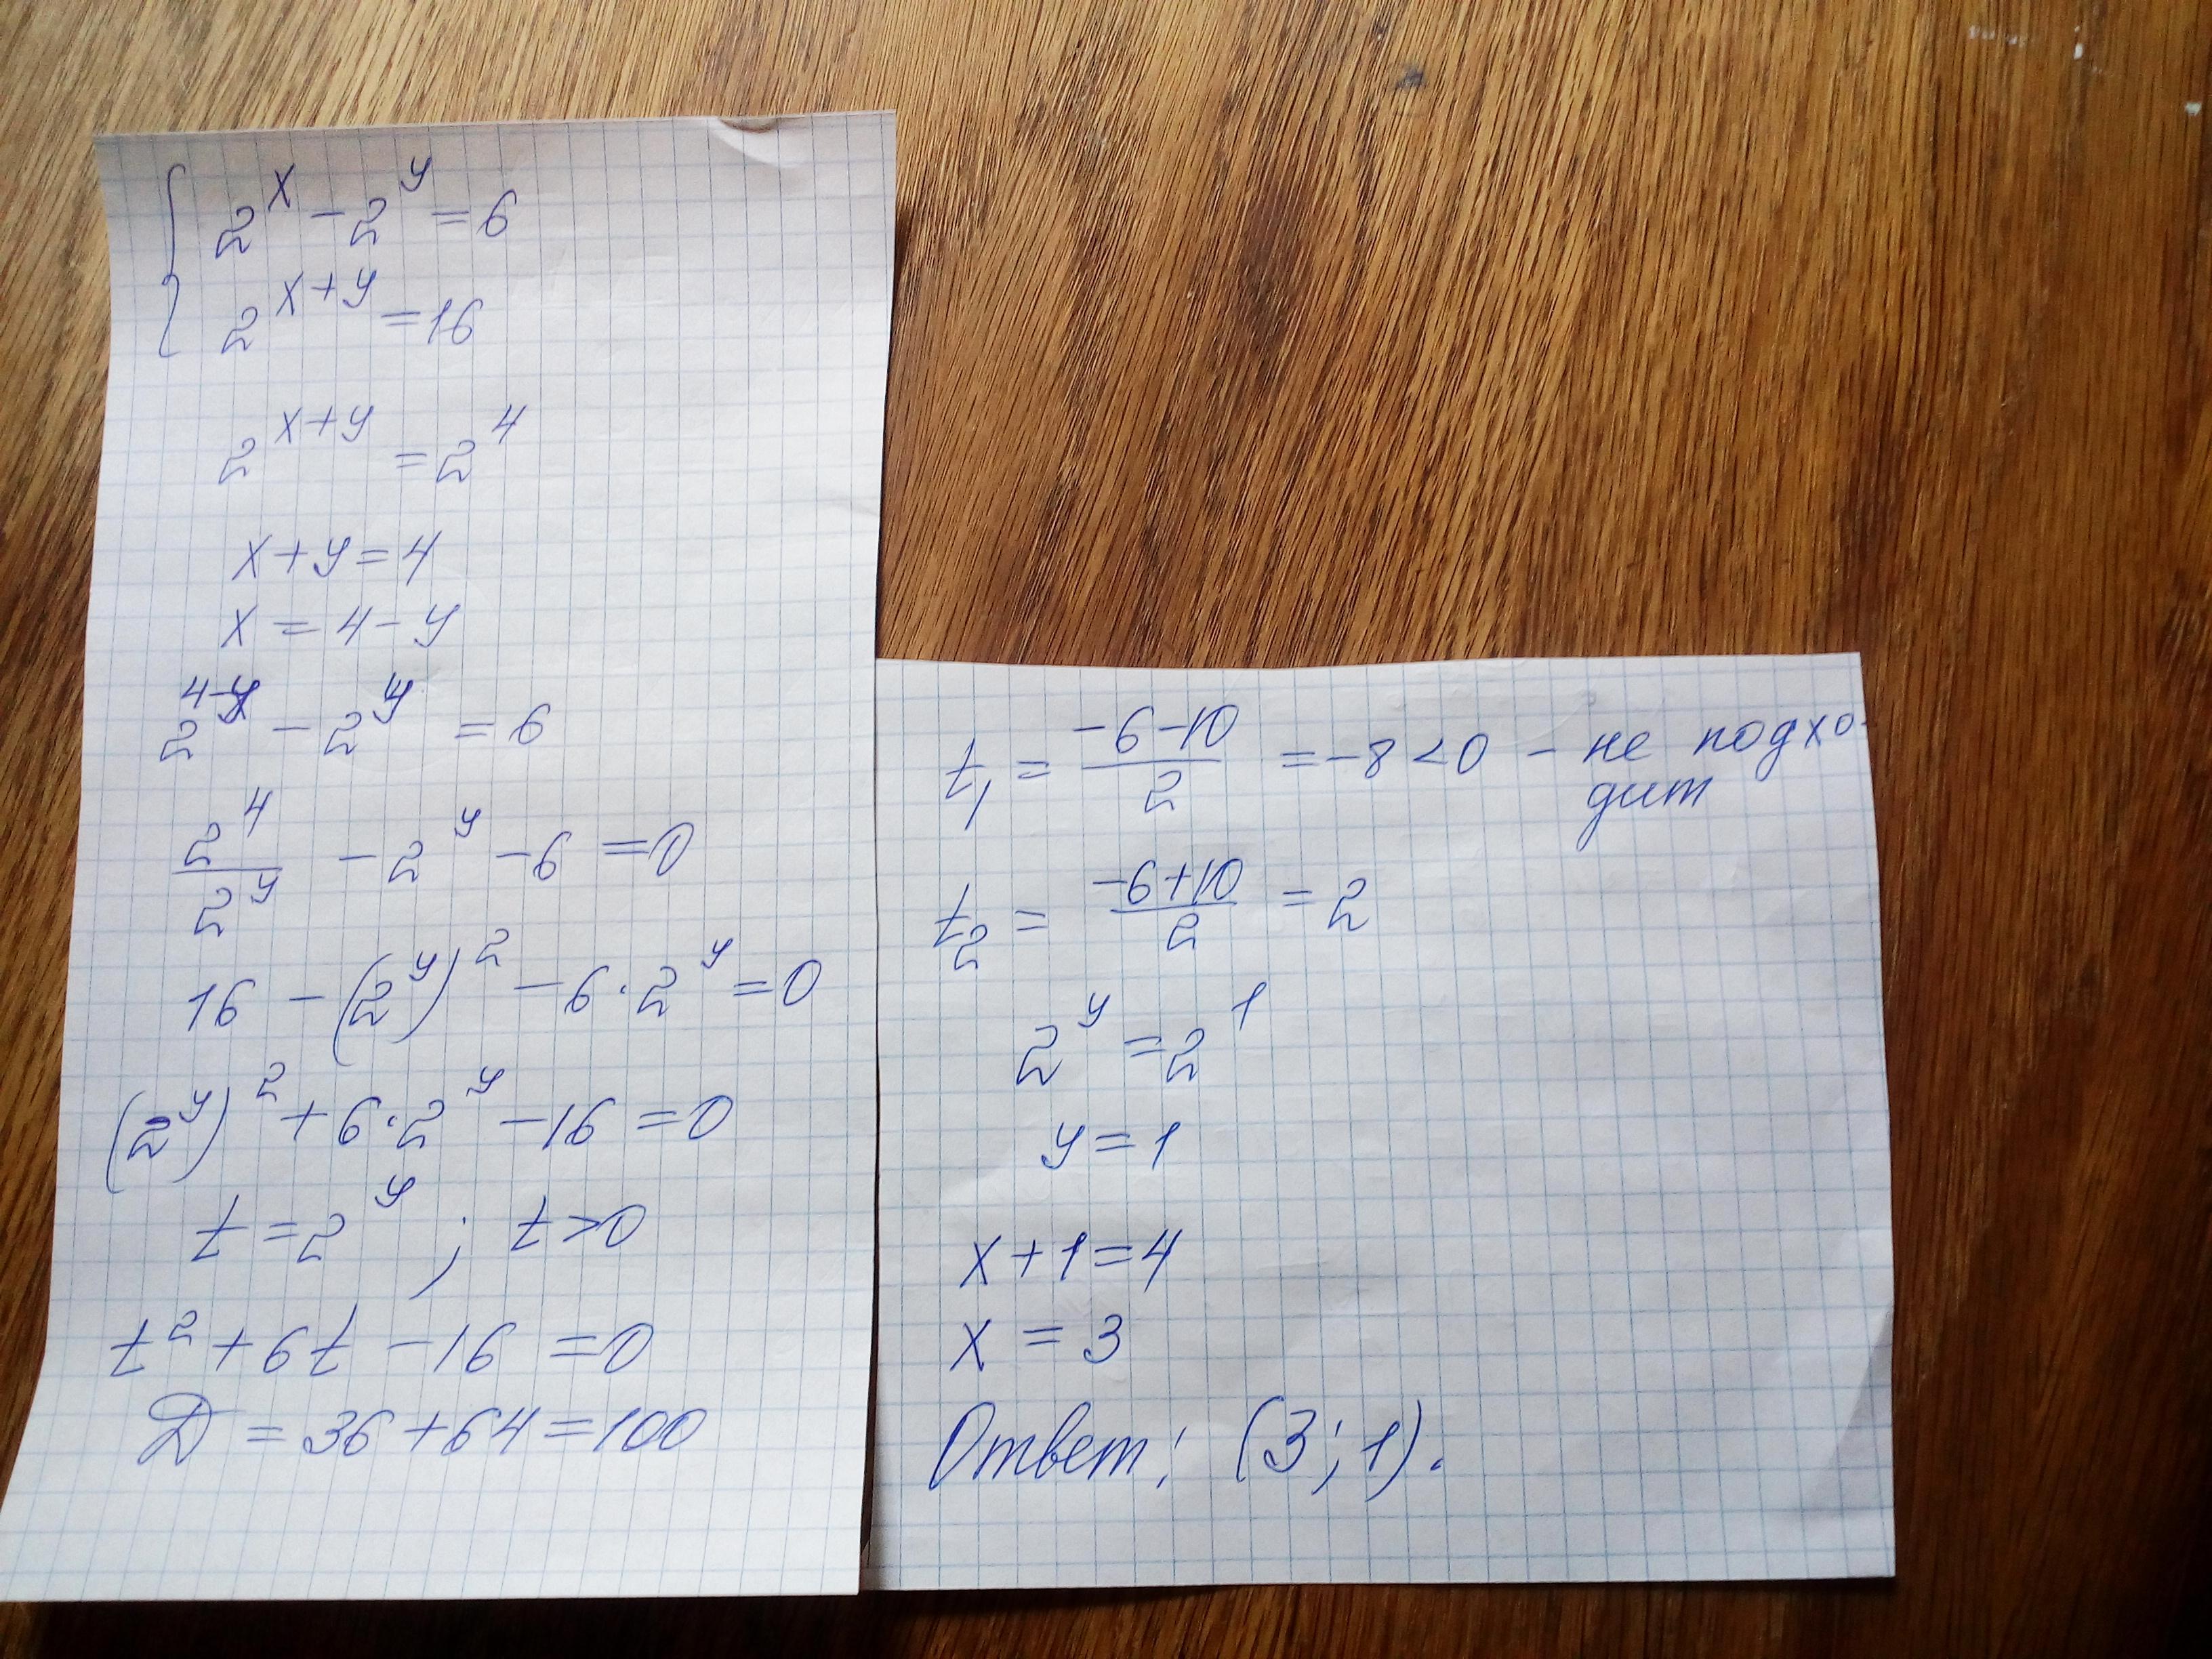 { 2^x - 2^y = 6
2^{x+y} = 16
2^{x+y} = 2^4
x + y = 4
x = 4 - y
2^{4-y} - 2^y = 6
2^4/2^y - 2^y - 6 = 0
16 - (2^y)^2 - 6 · 2^y = 0
(2^y)^2 + 6 · 2^y - 16 = 0
t = 2^y ; t > 0
t^2 + 6t - 16 = 0
D = 36 + 64 = 100
t_1 = (-6 - 10)/2 = -8 < 0 - не подхо-
дит
t_2 = (-6 + 10)/2 = 2
2^y = 2^1
y = 1
x + 1 = 4
x = 3
Ответ: (3; 1).